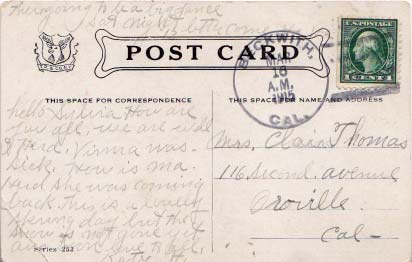 There going to be a big dance
Sat night
POST CARD
BECKWITH,
MAR
18
A.M.
1915
CAL.
U.S. POSTAGE
1 CENT 1
THIS SPACE FOR CORRESPONDENCE
THIS SPACE FOR NAME AND ADDRESS
Hello Sylvia How are
you all, we are well
Virnia was
sick, How is ma
she was coming
back. This is a lovely
spring day but the
snow is not gone yet
love to all,
Series 252
Mrs. Clair Thomas
116 Second. avenue
Oroville.
Cal-